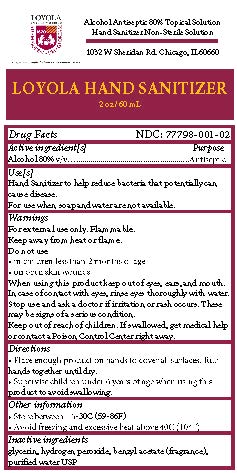 LOYOLA
Alcohol Antiseptic 80% Topical Solution
Hand Sanitizer Non-Sterile Solution
1032 W Sheridan Rd. Chicago, IL 60660
LOYOLA HAND SANITIZER
2 oz / 60 mL
Drug Facts NDC: 77798-001-02
Active ingredient[s] Purpose
Alcohol 80% v/v Antiseptic
Use[s]
Hand Sanitizer to help reduce bacteria that potentially can
cause disease.
For use when soap and water are not available.
Warnings
For external use only. Flammable.
Keep away from heat or flame.
Do not use
• in children less than 2 months of age
• on open skin wounds
When using this product keep out of eyes, ears, and mouth.
In case of contact with eyes, rinse eyes thoroughly with water.
Stop use and ask a doctor if irritation or rash occurs. These
may be signs of a serious condition.
Keep out of reach of children. If swallowed, get medical help
or contact a Poison Control Center right away.
Directions
• Place enough product on hands to cover all surfaces. Rub
hands together until dry.
• Supervise children under 6 years of age when using this
product to avoid swallowing.
Other information
• Store between 15-30C (59-86F)
• Avoid freezing and excessive heat above 40C (104F)
Inactive ingredients
glycerin, hydrogen, peroxide, benzyl acetate (fragrance),
purified water USP